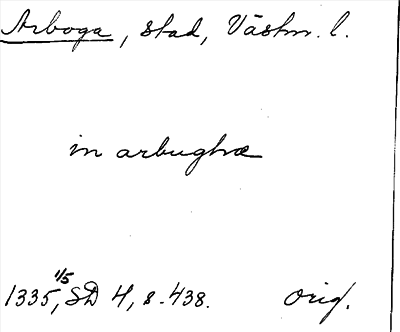 Arboga, stad, Västm. l.
in arbughæ
1335 1/5, SD 4, s. 438. orig.